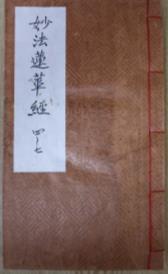 妙法蓮華經 四～七